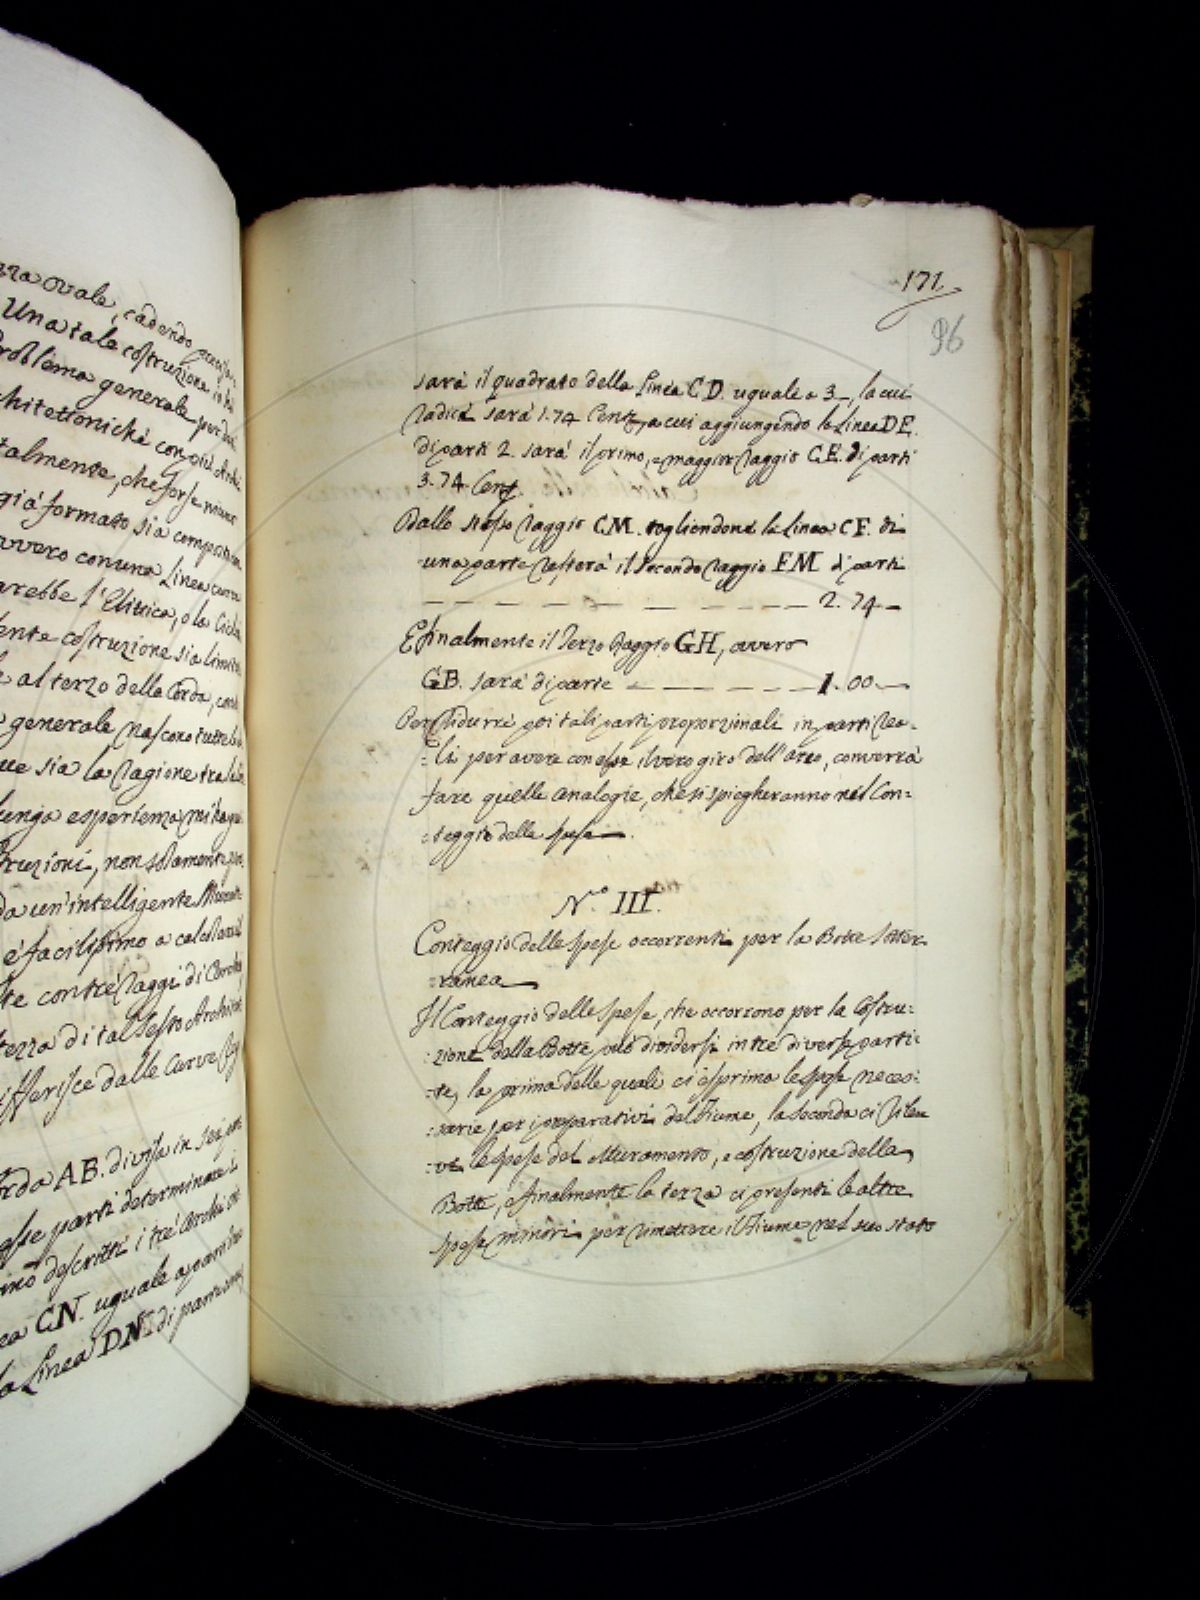 zza ovale, cadendo
Una tale costruzione
Problema generale per
chitettoniche con più
talmente, che forse niuno
già formato sia
vvero con una Linea curva
arebbe l'Elittica, o la
ente costruzione sia
e al terzo della Corda,
generale nascono tutte
ue sia la ragione tra
unga esperienza mi
truzioni, non solamente
da un'intelligente
é facilissimo a
te con tré raggi di
tezza di tal Sesto
ifferisce dalle Curve
orda AB. divisa in sei
esse parti determinate
descritti i tré Archi
ea CN. uguale a
la Linea DN. di
171
96
sarà il quadrato della Linea CD. uguale a 3 , la cui
radice sarà 1.74 Cent, a cui aggiungendo la Linea DE.
di parti 2. sarà il primo, e maggior raggio CE. di parti
3.74 Cent.
Dallo stesso raggio CM. togliendone la Linea CF. di
una parte resterà il secondo raggio FM di parti
— — — — — — — — 2. 74 —
E finalmente il Terzo Raggio GH, overo
GB. sarà di parte — — — — — 1. 00 —
Per ridurre poi tali parti proporzionali in parti rea-
:li per avere con esse il vero giro dell'arco, converrà
fare quelle analogie, che si spiegheranno nel Con=
:teggio delle spese.
N.° III.
Conteggio delle spese occorrenti per la Botte sotter-
:ranea
Il Conteggio delle spese, che occorrono per la Costru:
:zione della Botte può dividersi in tré diverse parti:
:te, la prima delle quali ci esprima le spese neces:
:sarie per i preparativi del Fiume, la seconda ci rilevi
le spese del Muramento, e costruzione della
Botte, e finalmente la terza ci presenti le altre
spese minori per rimettere il Fiume nel suo stato